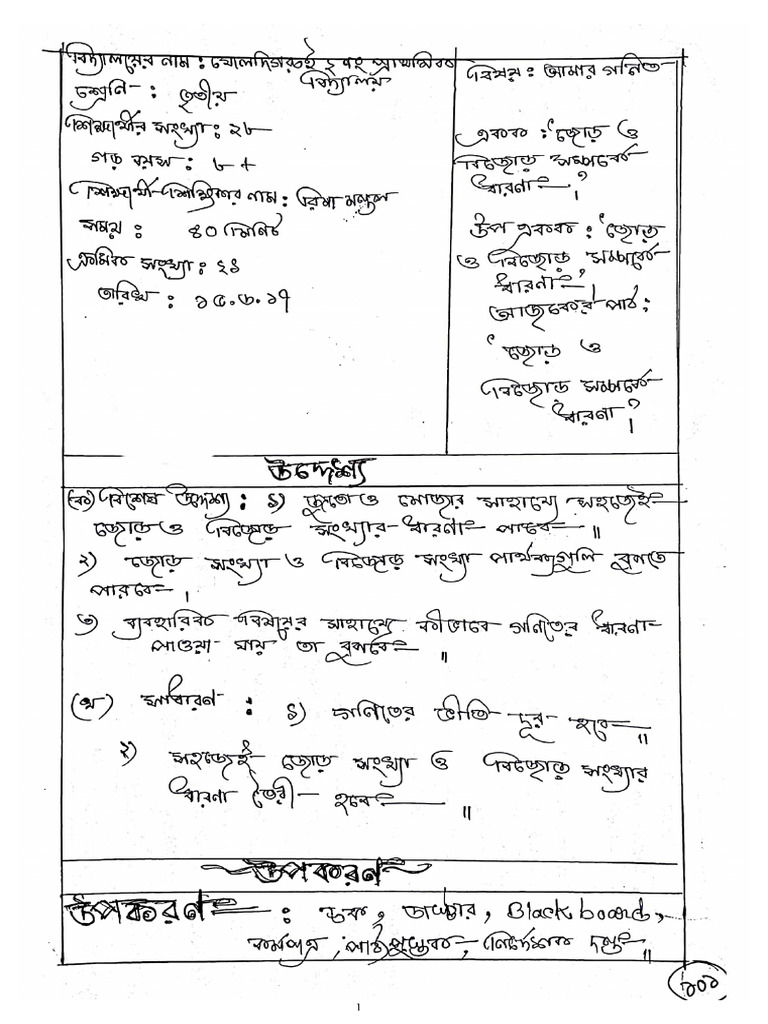 বিদ্যালয়ের নাম : খেলেদিগরুই ২ নং প্রাথমিক
বিদ্যালয়
শ্রেণি : তৃতীয়
শিক্ষার্থীর সংখ্যা : ২৮
গড় বয়স : ৮ +
শিক্ষার্থী-শিক্ষিকার নাম : রিমা মণ্ডল
সময় : ৪০ মিনিট
ক্রমিক সংখ্যা : ২১
তারিখ : ১৫.৬.১৭
বিষয় : আমার গণিত
একক : 'জোড় ও
বিজোড় সম্পর্কে
ধারণা'।
উপ একক : 'জোড়
ও বিজোড় সম্পর্কে
ধারণা'।
আজকের পাঠ :
'জোড় ও
বিজোড় সম্পর্কে
ধারণা'।
উদ্দেশ্য
(ক) বিশেষ উদ্দেশ্য : ১) জুতো ও মোজার সাহায্যে সহজেই
জোড় ও বিজোড় সংখ্যার ধারণা পাবে॥
২) জোড় সংখ্যা ও বিজোড় সংখ্যা পার্থক্যগুলি বুঝতে
পারবে।
৩) ব্যবহারিক বিষয়ের সাহায্যে কীভাবে গণিতের ধারণা
পাওয়া যায় তা বুঝবে॥
(খ) সাধারণ : ১) গণিতের ভীতি দূর হবে॥
২) সহজেই জোড় সংখ্যা ও বিজোড় সংখ্যার
ধারণা তৈরী হবে॥
উপকরণ
উপকরণ : চক, ডাস্টার, Black board,
কর্মপত্র, পাঠ্যপুস্তক, নির্দেশক দণ্ড॥
১